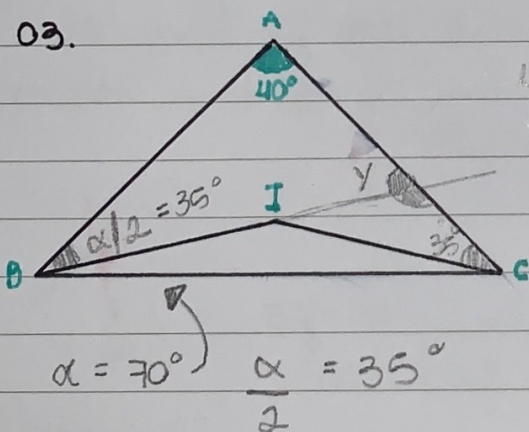 03.
A
40°
I
y
α/2 = 35°
35°
B
C
α = 70°
α/2 = 35°